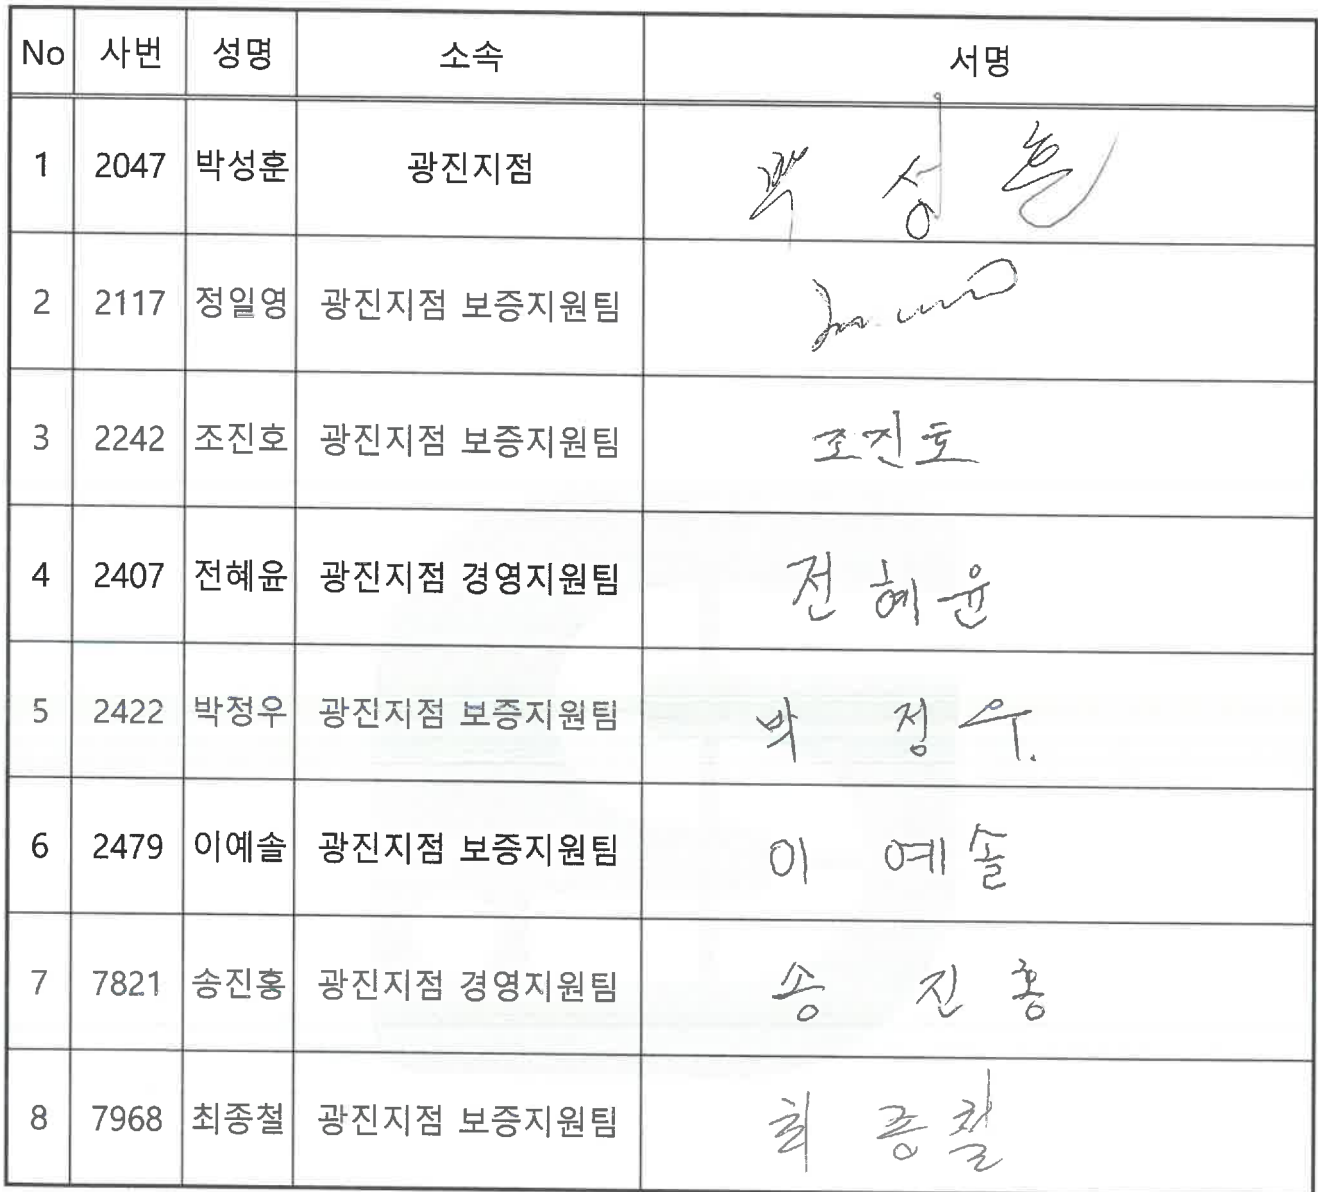 No 사번 성명 소속 서명
1 2047 박성훈 광진지점 박성훈
2 2117 정일영 광진지점 보증지원팀
3 2242 조진호 광진지점 보증지원팀 조진호
4 2407 전혜윤 광진지점 경영지원팀 전혜윤
5 2422 박정우 광진지점 보증지원팀 박정우.
6 2479 이예솔 광진지점 보증지원팀 이예솔
7 7821 송진홍 광진지점 경영지원팀 송진홍
8 7968 최종철 광진지점 보증지원팀 최종철